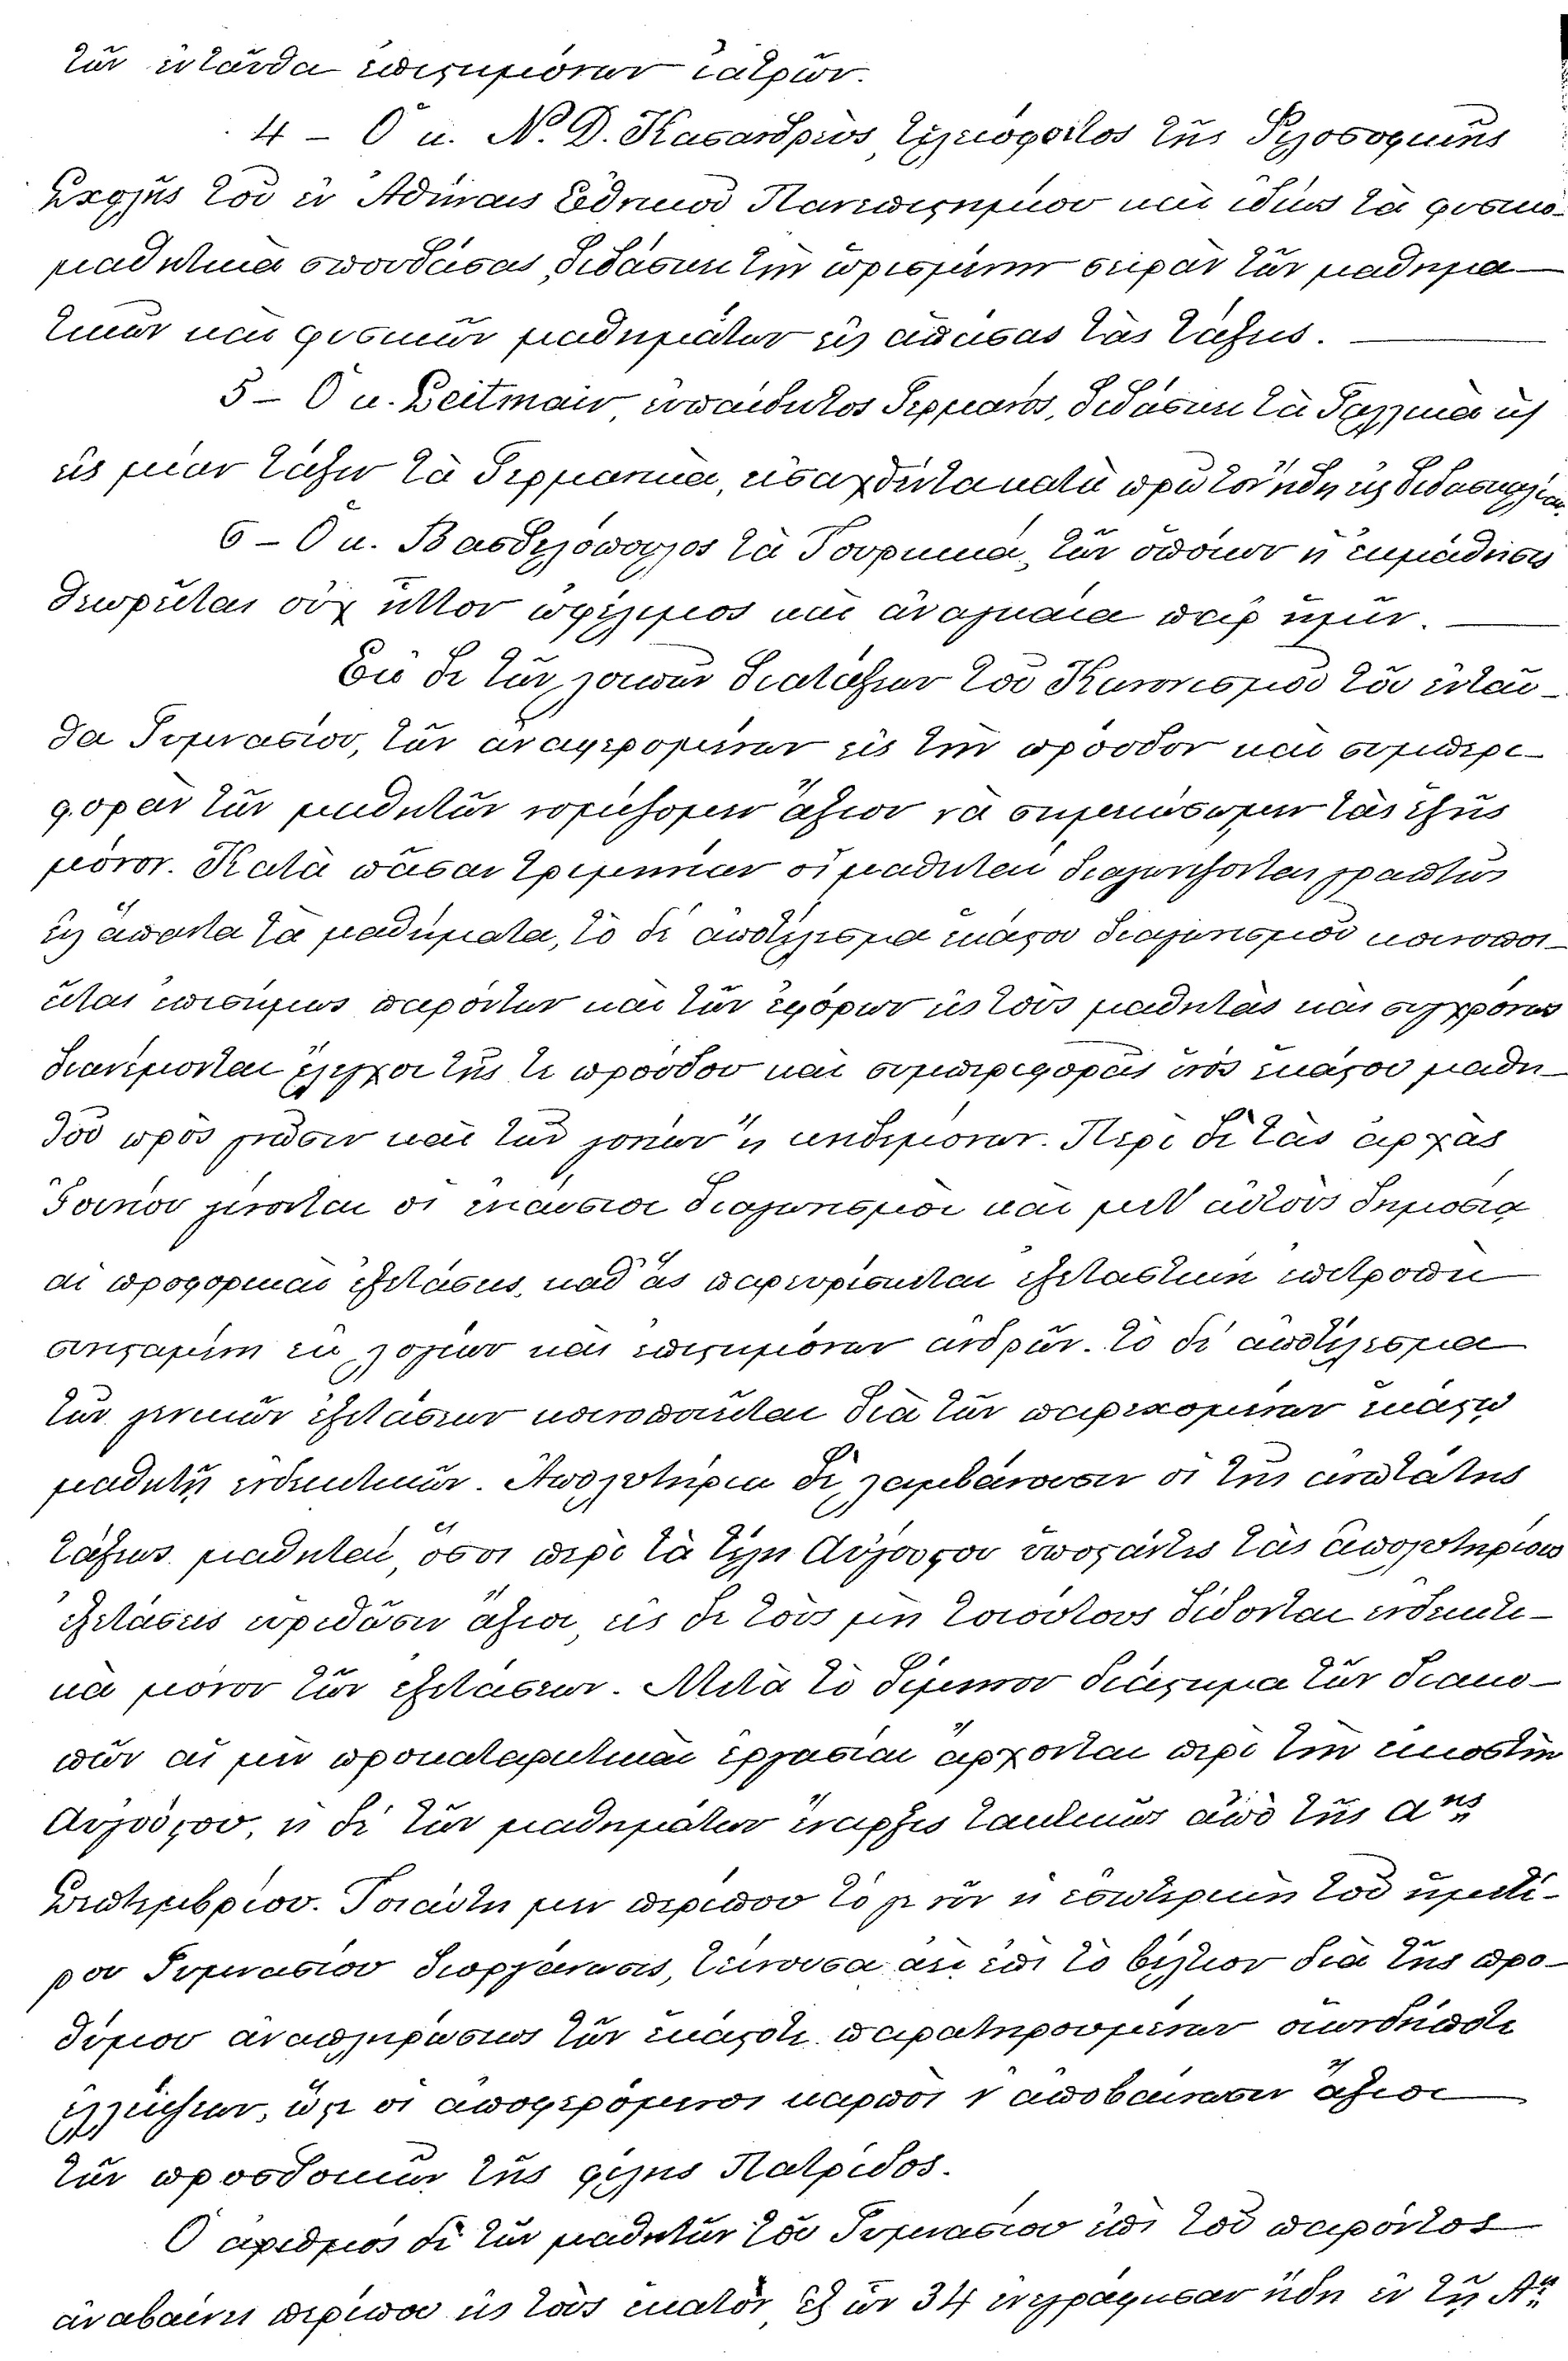 τῶν ἐνταῦθα ἐπιστημόνων ἰατρῶν.
4 – Ὁ κ. Ν. Δ. Κασανδρινὸς, τελειόφοιτος τῆς Φιλοσοφικῆς
Σχολῆς τοῦ ἐν Ἀθήναις Ἐθνικοῦ Πανεπιστημίου καὶ ἰδίως τὰ φυσικο-
μαθητικὰ σπουδάσας, διδάσκει τὴν ὡρισμένην σειρὰν τῶν μαθημα-
τικῶν καὶ φυσικῶν μαθημάτων εἰς ἁπάσας τὰς τάξεις.
5 – Ὁ κ. Βeitmair, ἐκπαιδευτὸς Γερμανὸς, διδάσκει τὰ Γαλλικὰ καὶ
εἰς μίαν τάξιν τὰ Γερμανικὰ, εἰσαχθέντα κατὰ πρῶτον ἤδη εἰς διδασκαλίαν.
6 – Ὁ κ. Βασδελόπουλος τὰ Τουρκικὰ, τῶν ὁποίων ἡ ἐκμάθησις
θεωρεῖται οὐχ ἧττον ὠφέλιμος καὶ ἀναγκαία παρ' ἡμῖν.
Ἐκ δὲ τῶν λοιπῶν διατάξεων τοῦ Κανονισμοῦ τοῦ ἐνταῦ-
θα Γυμνασίου, τῶν ἀναφερομένων εἰς τὴν πρόοδον καὶ συμπερι-
φορὰν τῶν μαθητῶν νομίζομεν ἄξιον νὰ σημειώσωμεν τὰς ἑξῆς
μόνον. Κατὰ πᾶσαν τριμηνίαν οἱ μαθηταὶ διαγωνίζονται γραπτῶς
εἰς ἅπαντα τὰ μαθήματα, τὸ δὲ ἀποτέλεσμα ἑκάστου διαγωνισμοῦ κοινοποι-
εῖται ἐπισήμως παρόντων καὶ τῶν ἐφόρων εἰς τοὺς μαθητὰς καὶ συγχρόνως
διανέμονται ἔλεγχοι τῆς τε προόδου καὶ συμπεριφορᾶς ἑνὸς ἑκάστου μαθη-
τοῦ πρὸς γνῶσιν καὶ τῶν γονέων ἢ κηδεμόνων. Περὶ δὲ τὰς ἀρχὰς
Ἰουνίου γίνονται οἱ ἐνιαύσιοι διαγωνισμοὶ καὶ μετ' αὐτοὺς δημοσίᾳ
αἱ προφορικαὶ ἐξετάσεις, καθ' ἃς παρευρίσκεται ἐξεταστικὴ ἐπιτροπὴ
συνισταμένη ἐκ λογίων καὶ ἐπιστημόνων ἀνδρῶν. τὸ δὲ ἀποτέλεσμα
τῶν γενικῶν ἐξετάσεων κοινοποιεῖται διὰ τῶν παρεχομένων ἑκάστῳ
μαθητῇ ἐνδεικτικῶν. Ἀπολυτήρια δὲ λαμβάνουσιν οἱ τῆς ἀνωτάτης
τάξεως μαθηταὶ, ὅσοι περὶ τὰ τέλη Αὐγούστου ὑποστάντες τὰς ἀπολυτηρίους
ἐξετάσεις κριθῶσιν ἄξιοι, εἰς δὲ τοὺς μὴ τοιούτους δίδονται ἐνδεικτι-
κὰ μόνον τῶν ἐξετάσεων. Μετὰ τὸ δίμηνον διάστημα τῶν διακο-
πῶν αἱ μὲν προκαταρκτικαὶ ἐργασίαι ἄρχονται περὶ τὴν εἰκοστὴν
Αὐγούστου, ἡ δὲ τῶν μαθημάτων ἔναρξις τακτικῶς ἀπὸ τῆς αης
Σεπτεμβρίου. Τοιαύτη μὲν περίπου τό γε νῦν ἡ ἐσωτερικὴ τοῦ ἡμετέ-
ρου Γυμνασίου διοργάνωσις, τείνουσα ἀεὶ ἐπὶ τὸ βέλτιον διὰ τῆς προ-
θύμου ἀναπληρώσεως τῶν ἑκάστοτε παρατηρουμένων οἱωνδήποτε
ἐλλείψεων, ὥστε οἱ ἀποφερόμενοι καρποὶ ν' ἀποβαίνωσιν ἄξιοι
τῶν προσδοκιῶν τῆς φίλης Πατρίδος.
Ὁ ἀριθμὸς δὲ τῶν μαθητῶν τοῦ Γυμνασίου ἐπὶ τοῦ παρόντος
ἀναβαίνει περίπου εἰς τοὺς ἑκατὸν, ἐξ ὧν 34 ἐνεγράφησαν ἤδη ἐν τῇ Αῃ